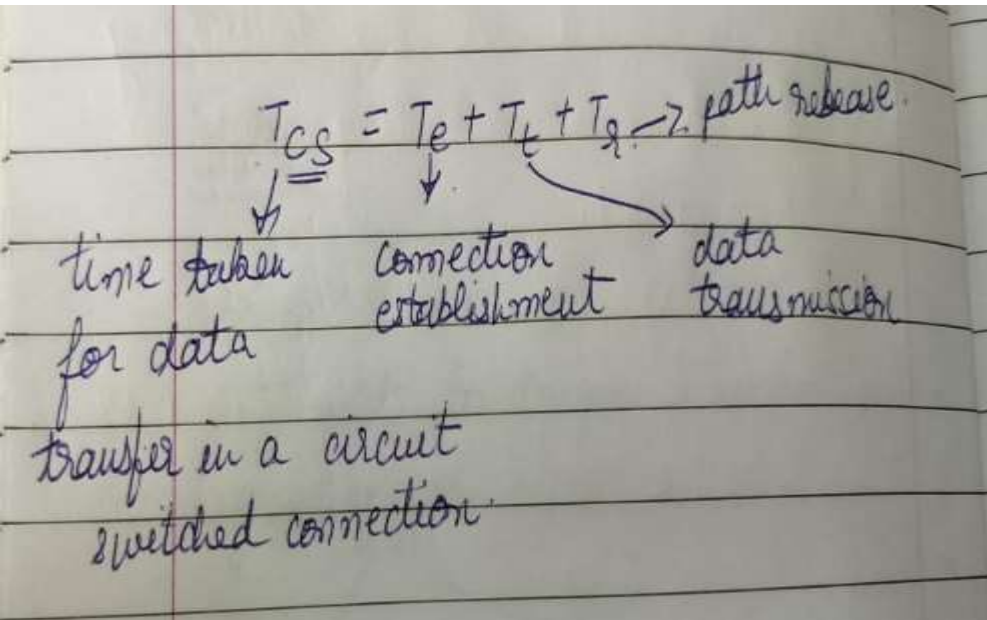 T_CS = T_e + T_t + T_r → path release.
time taken
for data
transfer in a circuit
switched connection.
connection
establishment
data
transmission